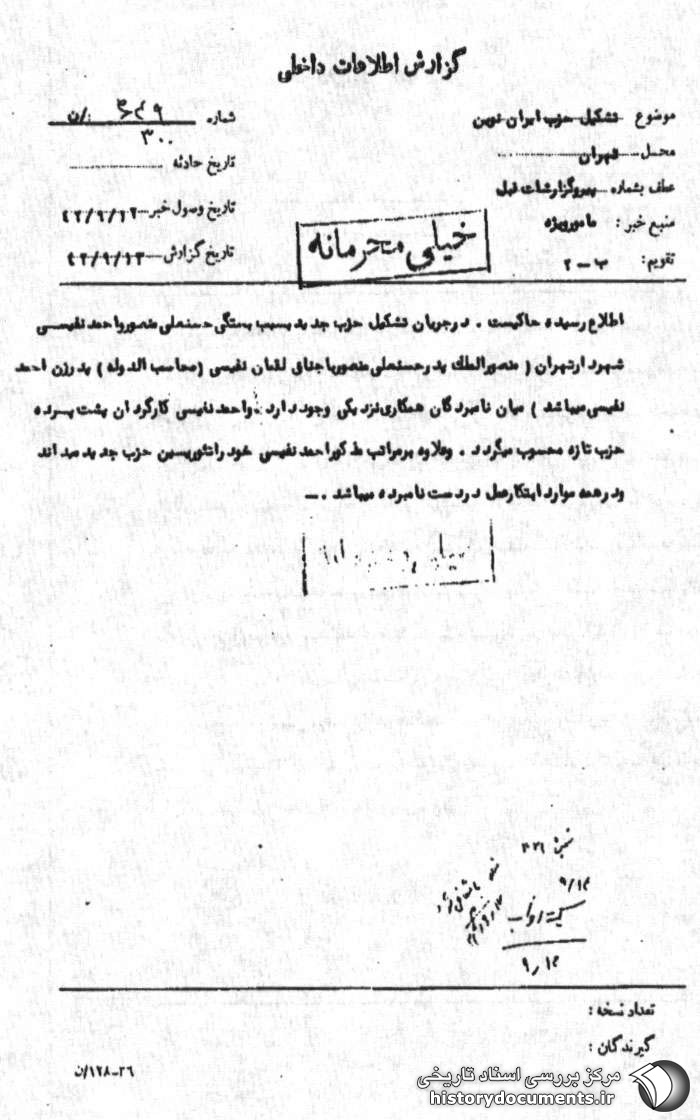 گزارش اطلاعات داخلی
موضوع تشکیل حزب ایران نوین
شماره ۳۰۰/ن
محل تهران
تاریخ حادثه
عطف بشماره پیروگزارشات قبل
تاریخ وصول خبر ۴۲/۹/۱۲
منبع خبر : مامورویژه
تاریخ گزارش ۴۲/۹/۱۳
تقویم : ب-۲
خیلی محرمانه
اطلاع رسیده حاکیست . درجریان تشکیل حزب جدید بسبب بستگی حسنعلی منصورواحمد نفیسی
شهردارتهران ( منصورالملک پدرحسنعلی منصورباجناق لقمان نفیسی (محاسب الدوله ) پدرزن احمد
نفیسی میباشد ) میان نامبردگان همکاری نزدیکی وجود دارد . واحمد نفیسی کارگردان پشت پرده
حزب تازه محسوب میگردد . وعلاوه برمراتب مذکوراحمد نفیسی خود راتئوریسین حزب جدید میداند
ودرهمه موارد ابتکارعمل دردست نامبرده میباشد . ـ
۹/۱۴
۹/۱۴
تعداد نسخه :
گیرندگان :
۳۶-۱۲۸/ن
مرکز بررسی اسناد تاریخی
historydocuments.ir